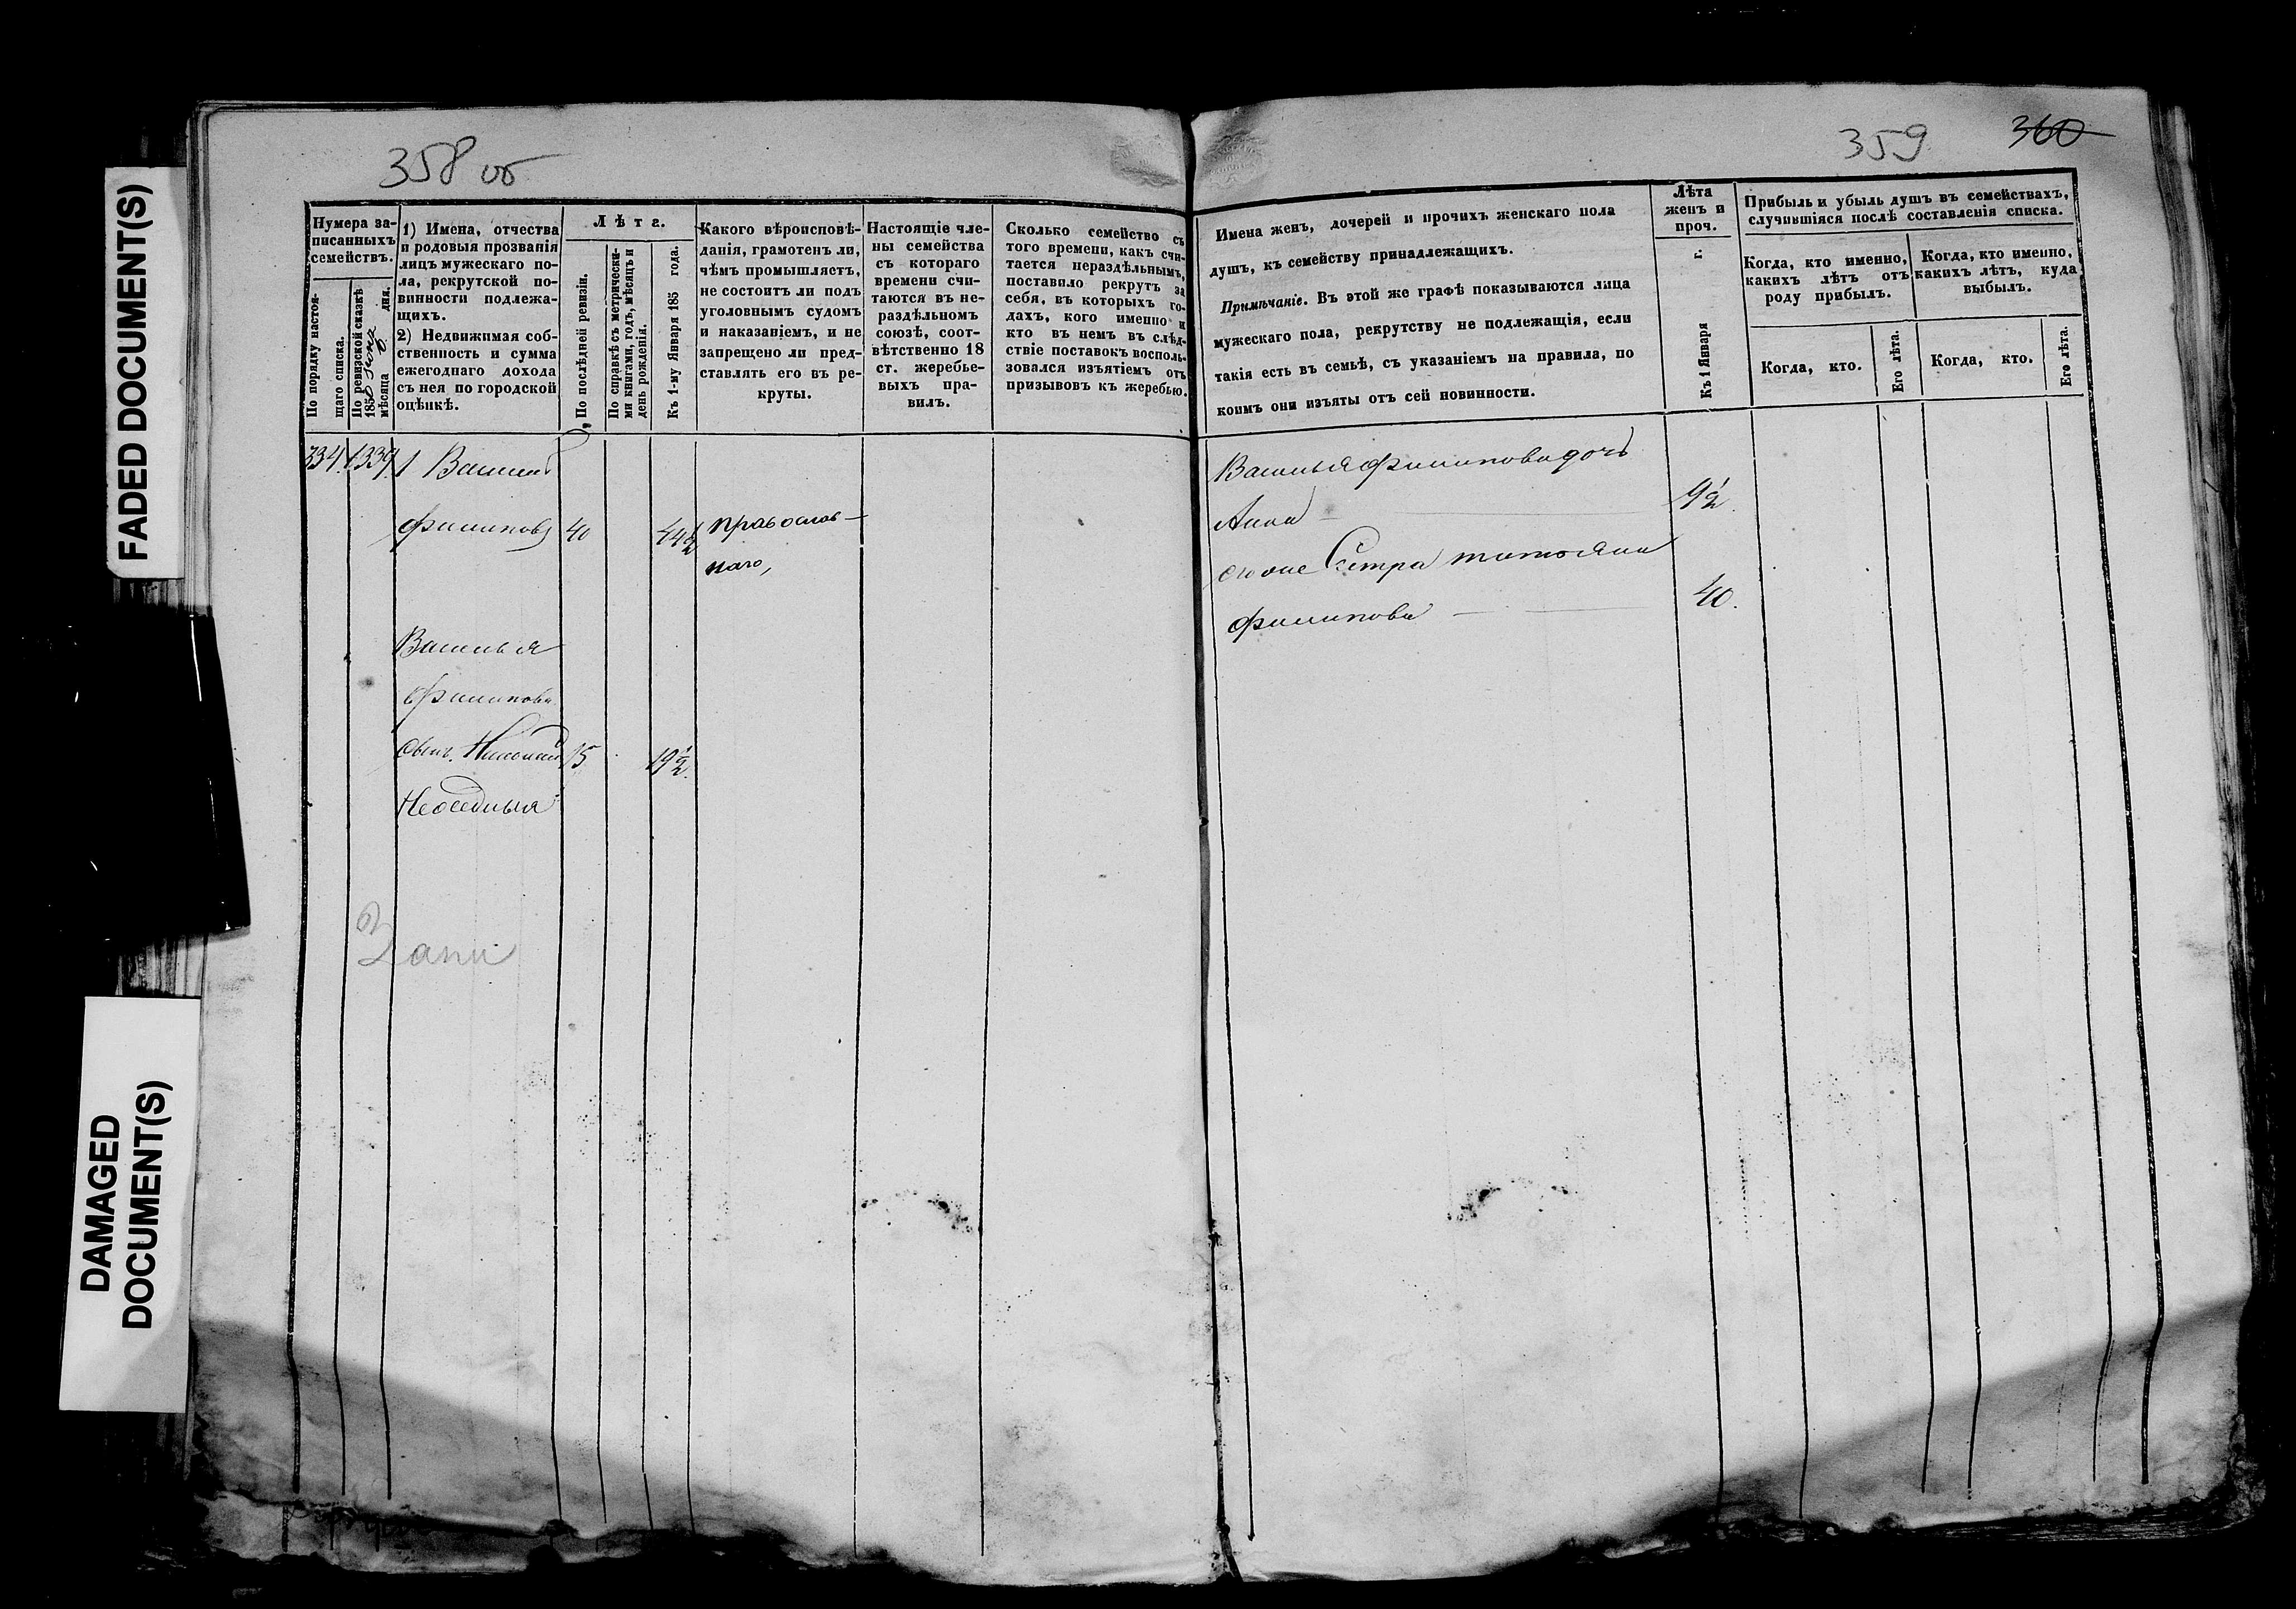 FADED DOCUMENT(S)
DAMAGED
DOCUMENT(S)
358 об
Нумера за-
писанныхъ
семействъ.
По порядку настоя-
щаго списка.
По ревизской сказкѣ
185
мѣсяца 6 дня.
1) Имена, отчества
и родовыя прозванія
лицъ мужескаго по-
ла, рекрутской по-
винности подлежа-
щихъ.
2) Недвижимая соб-
ственность и сумма
ежегоднаго дохода
съ нея по городской
оцѣнкѣ.
Лѣта.
По послѣдней ревизіи.
По справкѣ съ метрически-
ми книгами, годъ, мѣсяцъ и
день рожденія.
Къ 1-му Января 185 года.
Какого вѣроисповѣ-
данія, грамотенъ ли,
чѣмъ промышляетъ,
не состоитъ ли подъ
уголовнымъ судомъ
и наказаніемъ, и не
запрещено ли пред-
ставлять его въ ре-
круты.
Настоящіе чле-
ны семейства
съ котораго
времени счи-
таются въ не-
раздѣльномъ
союзѣ, соот-
вѣтственно 18
ст. жеребье-
выхъ пра-
вилъ.
Сколько семейство съ
того времени, какъ счи-
тается нераздѣльнымъ,
поставило рекрутъ за
себя, въ которыхъ го-
дахъ, кого именно и
кто въ немъ въ слѣд-
ствіе поставокъ восполь-
зовался изъятіемъ отъ
призывовъ къ жеребью.
334. 1339. 1 Василій
Филиповъ 40 44½ православ-
наго,
Василья
Филипова
сынъ Николай 15 19½.
Неоседлыя
Запи
359 360
Имена женъ, дочерей и прочихъ женскаго пола
душъ, къ семейству принадлежащихъ.
Примѣчаніе. Въ этой же графѣ показываются лица
мужескаго пола, рекрутству не подлежащія, если
такія есть въ семьѣ, съ указаніемъ на правила, по
коимъ они изъяты отъ сей повинности.
Лѣта
женъ и
проч.
Къ 1 Января г.
Прибыль и убыль душъ въ семействахъ,
случившіяся послѣ составленія списка.
Когда, кто именно,
какихъ лѣтъ отъ
роду прибылъ.
Когда, кто именно,
какихъ лѣтъ, куда
выбылъ.
Когда, кто.
Его лѣта.
Когда, кто.
Его лѣта.
Василья Филипова дочь
Анна 9½.
Сестра
Филипова 40.